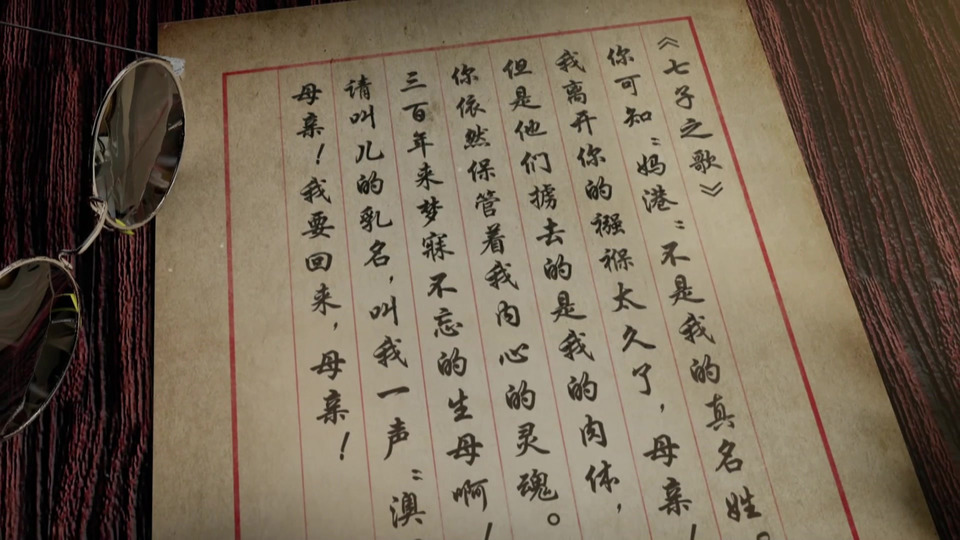 《七子之歌》
你可知“妈港”不是我的真名姓。
我离开你的襁褓太久了，母亲！
但是他们掳去的是我的肉体，
你依然保管着我内心的灵魂。
三百年来梦寐不忘的生母啊！
请叫儿的乳名，叫我一声“澳
母亲！我要回来，母亲！